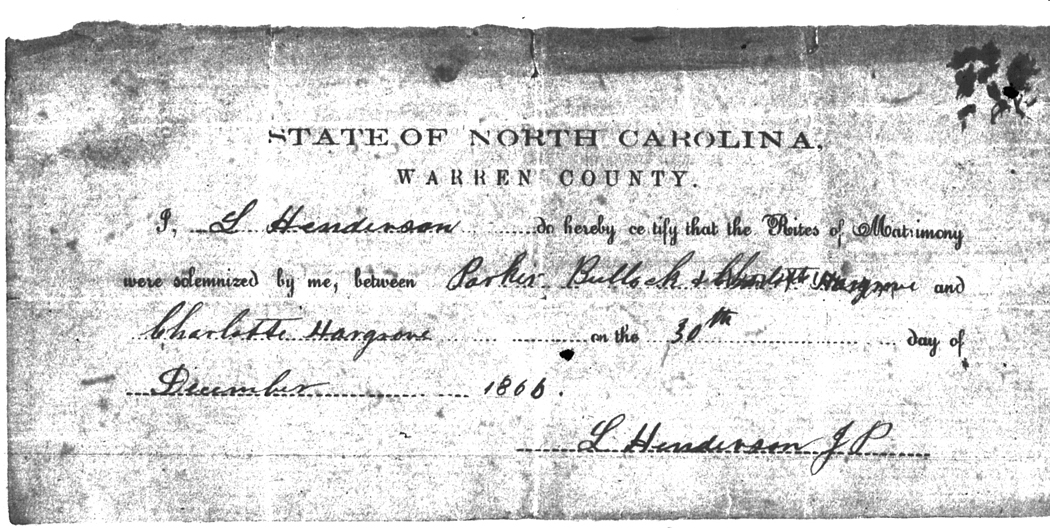 STATE OF NORTH CAROLINA,
WARREN COUNTY.
I, L Henderson do hereby certify that the Rites of Matrimony
were solemnized by me, between Parker Bullock & Charlotte Hargrove and
Charlotte Hargrove on the 30th day of
December 1866.
L Henderson J P